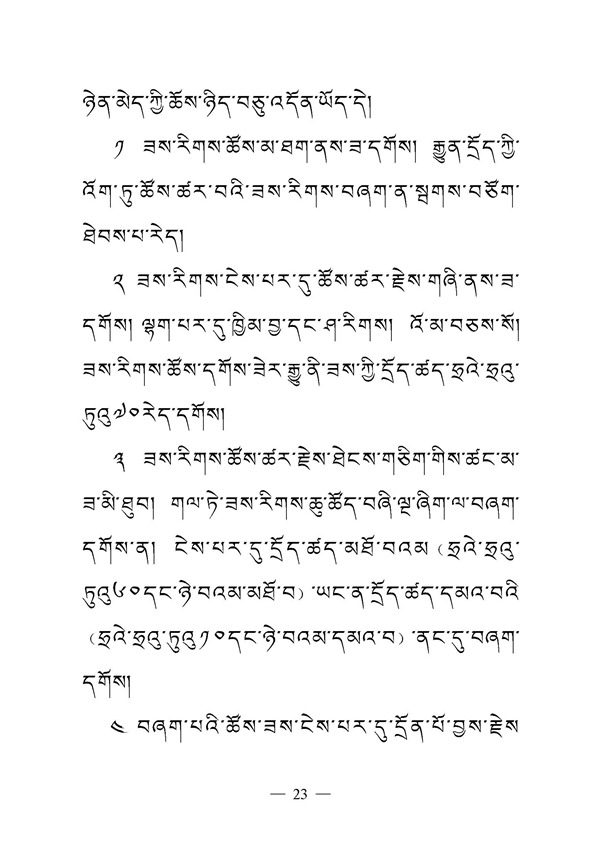 ཉེན་མེད་ཀྱི་ཆོས་ཉིད་བཅུ་འདོན་ཡོད་དེ།
༡ ཟས་རིགས་ཚོས་མ་ཐག་ནས་ཟ་དགོས། རྒྱུན་དྲོད་ཀྱི་
འོག་ཏུ་ཚོས་ཚར་བའི་ཟས་རིགས་བཞག་ན་སྦགས་བཙོག་
ཐེབས་པ་རེད།
༢ ཟས་རིགས་ངེས་པར་དུ་ཚོས་ཚར་རྗེས་གཞི་ནས་ཟ་
དགོས། ལྷག་པར་དུ་ཁྱིམ་བྱ་དང་ཤ་རིགས། འོ་མ་བཅས་སོ།
ཟས་རིགས་ཚོས་དགོས་ཟེར་རྒྱུ་ནི་ཟས་ཀྱི་དྲོད་ཚད་ཧྲའེ་ཧྲའུ་
ཏུའུ༧༠རེད་དགོས།
༣ ཟས་རིགས་ཚོས་ཚར་རྗེས་ཐེངས་གཅིག་གིས་ཚང་མ་
ཟ་མི་ཐུབ། གལ་ཏེ་ཟས་རིགས་ཆུ་ཚོད་བཞི་ལྔ་ཞིག་ལ་བཞག་
དགོས་ན། ངེས་པར་དུ་དྲོད་ཚད་མཐོ་བའམ（ཧྲའེ་ཧྲའུ་
ཏུའུ༦༠དང་ཉེ་བའམ་མཐོ་བ）ཡང་ན་དྲོད་ཚད་དམའ་བའི
（ཧྲའེ་ཧྲའུ་ཏུའུ༡༠དང་ཉེ་བའམ་དམའ་བ）ནང་དུ་བཞག་
དགོས།
༤ བཞག་པའི་ཚོས་ཟས་ངེས་པར་དུ་དྲོན་པོ་བྱས་རྗེས
— 23 —